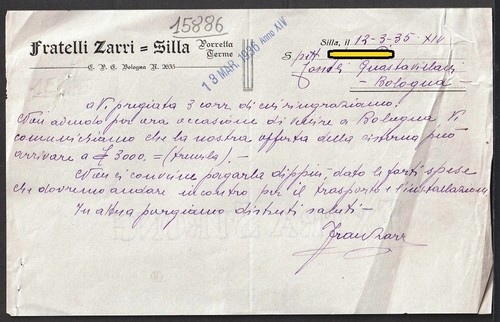 15886
Fratelli Zarri = Silla Porretta
Terme
C. P. E. Bologna N. 2635
18 MAR. 1936 Anno XIV
Silla, il 12-3-36-XIV
Spett.
Bologna
a Vi pregiata 3 corr. di cui ringraziamo.
Non avendo per ora occasione di venire a Bologna Vi
comunichiamo che la nostra offerta della cisterna può
arrivare a £ 3000.= (tremila).-
Non ci conviene pagarla dippiù, dato le forti spese
che dovremo andare incontro per il trasporto e l'installazione
In attesa porgiamo distinti saluti-